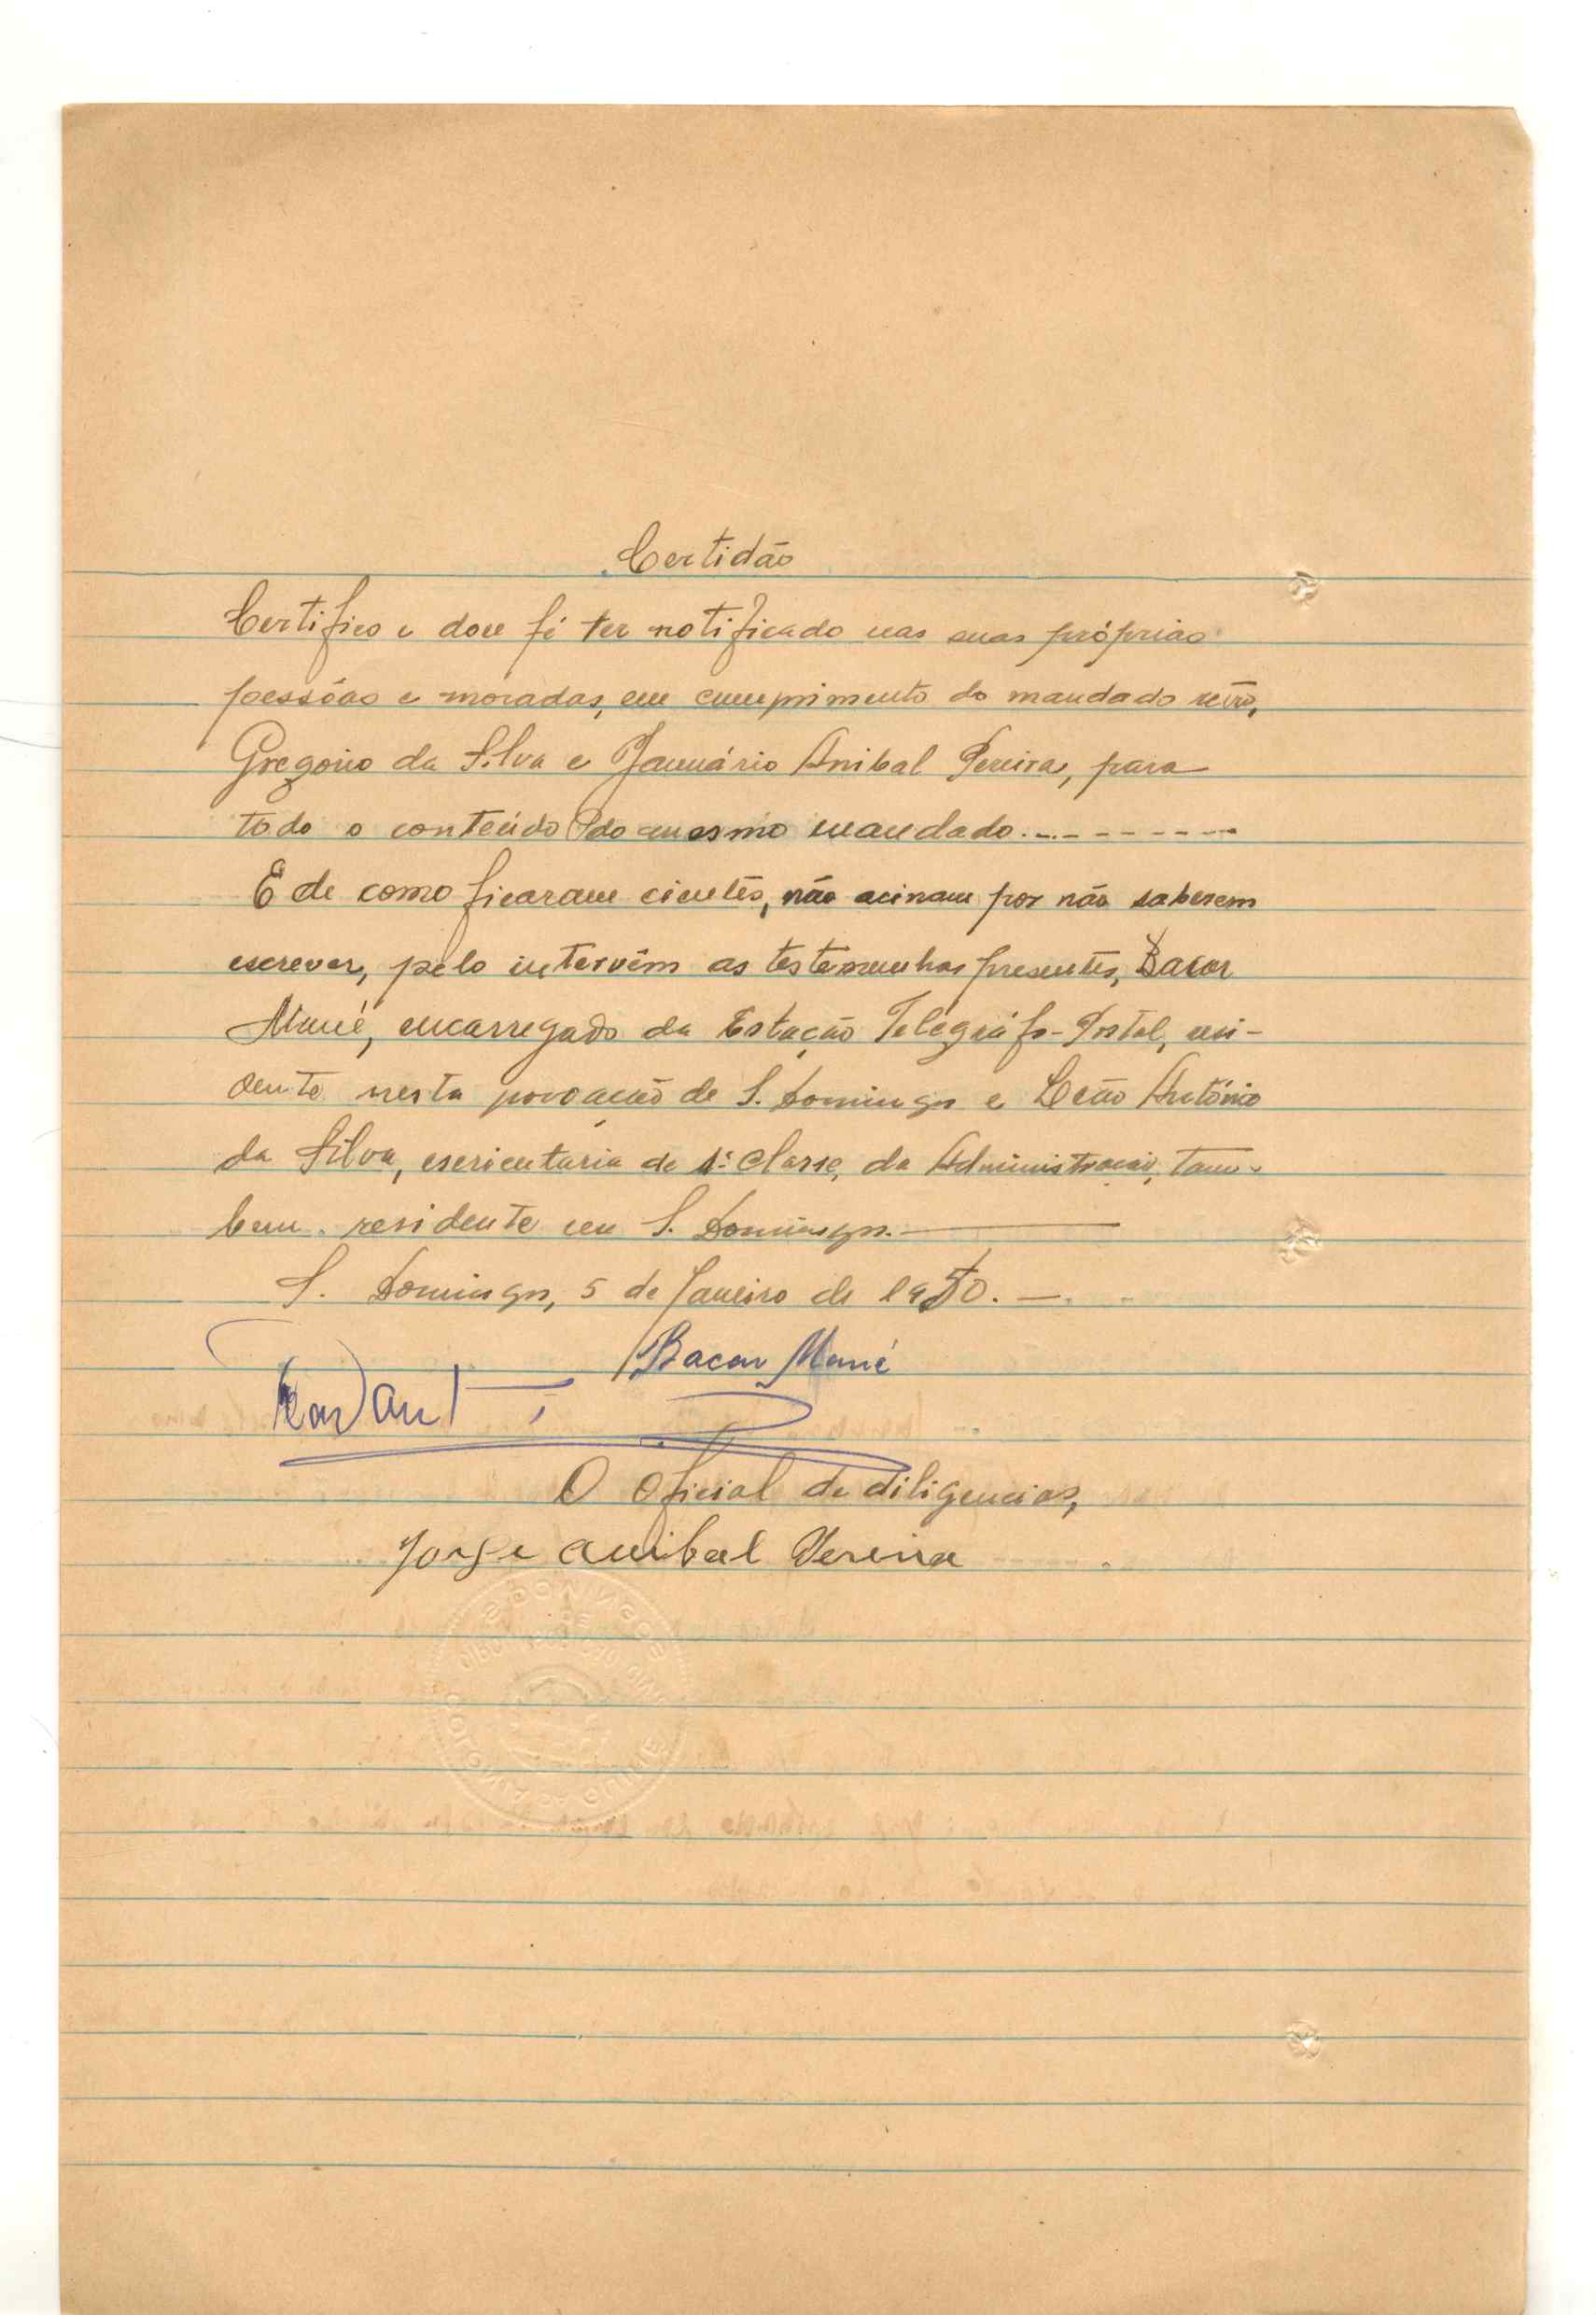 Certidão
Certifico e dou fé ter notificado nas suas próprias
pessôas e moradas, em cumprimento do mandado retro,
Gregorio da Silva e Januário Anibal Pereira, para
todo o conteúdo do mesmo mandado.
E de como ficaram cientes, não acinam por não saberem
escrever, pelo intervêm as testemunhas presentes, Bacar
Mané, encarregado da Estação Telégráfo-Postal, resi-
dente nesta povoação de S. Domingos e Leão António
da Silva, escrienturia de 1ª classe, da Administração, tam-
bem residente em S. Domingos.
S. Domingos, 5 de Janeiro de 1950.
Bacar Mané
O Oficial de diligencias,
Jorge Anibal Pereira
S DOMINGOS